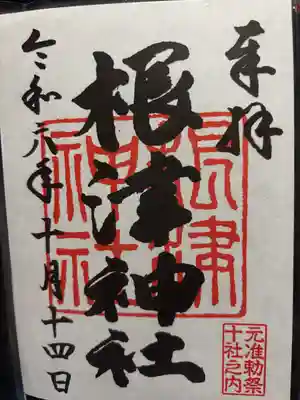 奉拝
根津神社
根津神社
令和元年十月十四日
元准勅祭
十社之内